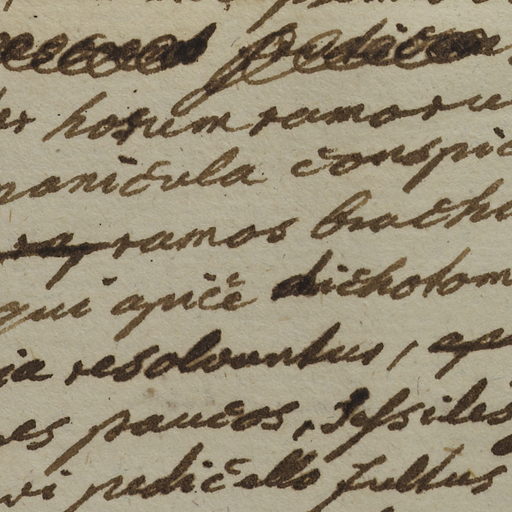 horum ramoru
panicula conspic
ramos brachi
qui apice dichotom
ia resolvuntur,
es paucos, sessiles
vi pedicello fultus